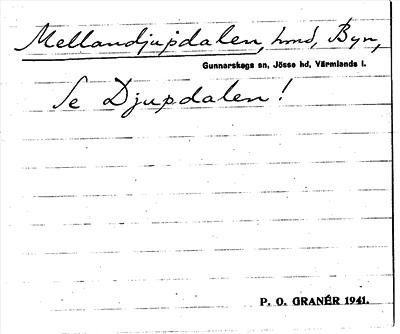 Mellandjupdalen, hmd, Byn,
Gunnarskogs sn, Jösse hd, Värmlands l.
Se Djupdalen!
P. O. GRANÉR 1941.